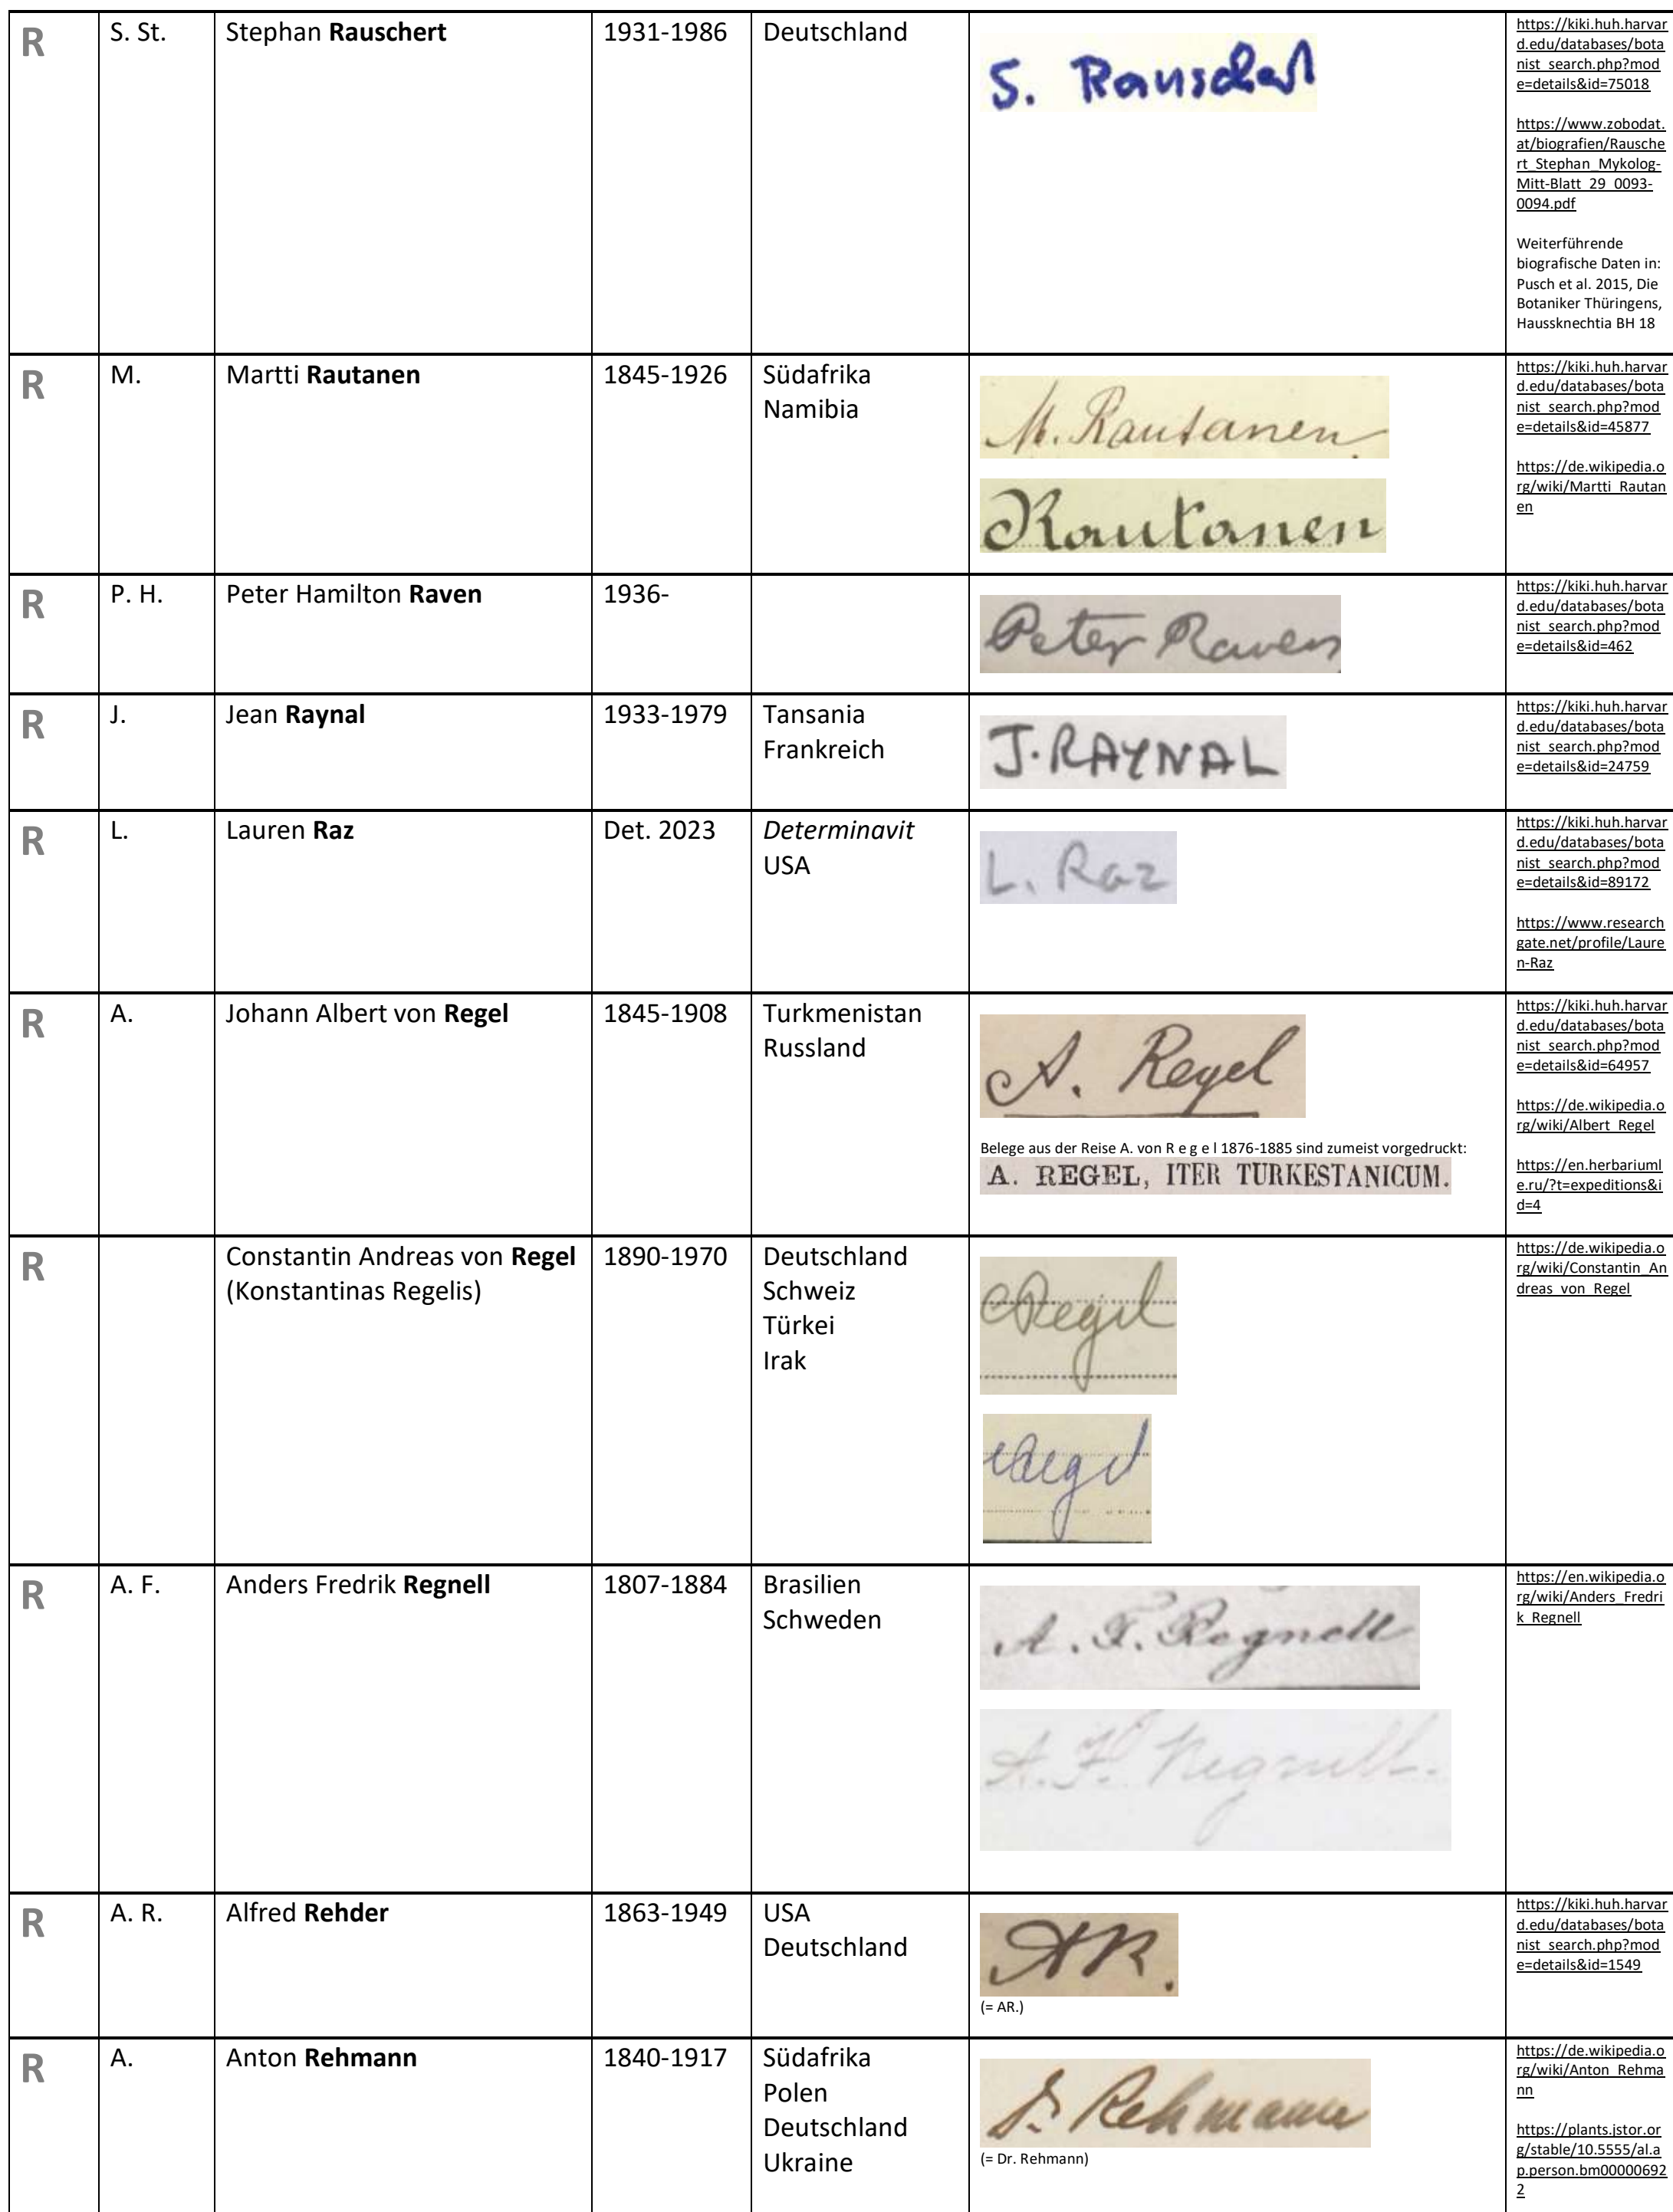 R
S. St.
Stephan Rauschert
1931-1986
Deutschland
S. Rauschert
https://kiki.huh.harvar
d.edu/databases/bota
nist_search.php?mod
e=details&id=75018
https://www.zobodat.
at/biografien/Rausche
rt_Stephan_Mykolog-
Mitt-Blatt_29_0093-
0094.pdf
Weiterführende
biografische Daten in:
Pusch et al. 2015, Die
Botaniker Thüringens,
Haussknechtia BH 18
R
M.
Martti Rautanen
1845-1926
Südafrika
Namibia
M. Rautanen.
Rautanen
https://kiki.huh.harvar
d.edu/databases/bota
nist_search.php?mod
e=details&id=45877
https://de.wikipedia.o
rg/wiki/Martti_Rautan
en
R
P. H.
Peter Hamilton Raven
1936-
Peter Raven
https://kiki.huh.harvar
d.edu/databases/bota
nist_search.php?mod
e=details&id=462
R
J.
Jean Raynal
1933-1979
Tansania
Frankreich
J. RAYNAL
https://kiki.huh.harvar
d.edu/databases/bota
nist_search.php?mod
e=details&id=24759
R
L.
Lauren Raz
Det. 2023
Determinavit
USA
L. Raz
https://kiki.huh.harvar
d.edu/databases/bota
nist_search.php?mod
e=details&id=89172
https://www.research
gate.net/profile/Laure
n-Raz
R
A.
Johann Albert von Regel
1845-1908
Turkmenistan
Russland
A. Regel
Belege aus der Reise A. von R e g e l 1876-1885 sind zumeist vorgedruckt:
A. REGEL, ITER TURKESTANICUM.
https://kiki.huh.harvar
d.edu/databases/bota
nist_search.php?mod
e=details&id=64957
https://de.wikipedia.o
rg/wiki/Albert_Regel
https://en.herbariuml
e.ru/?t=expeditions&i
d=4
R
Constantin Andreas von Regel
(Konstantinas Regelis)
1890-1970
Deutschland
Schweiz
Türkei
Irak
CRegel
CRegel
https://de.wikipedia.o
rg/wiki/Constantin_An
dreas_von_Regel
R
A. F.
Anders Fredrik Regnell
1807-1884
Brasilien
Schweden
A. F. Regnell
A. F. Regnell.
https://en.wikipedia.o
rg/wiki/Anders_Fredri
k_Regnell
R
A. R.
Alfred Rehder
1863-1949
USA
Deutschland
AR.
(= AR.)
https://kiki.huh.harvar
d.edu/databases/bota
nist_search.php?mod
e=details&id=1549
R
A.
Anton Rehmann
1840-1917
Südafrika
Polen
Deutschland
Ukraine
Dr. Rehmann
(= Dr. Rehmann)
https://de.wikipedia.o
rg/wiki/Anton_Rehma
nn
https://plants.jstor.or
g/stable/10.5555/al.a
p.person.bm00000692
2